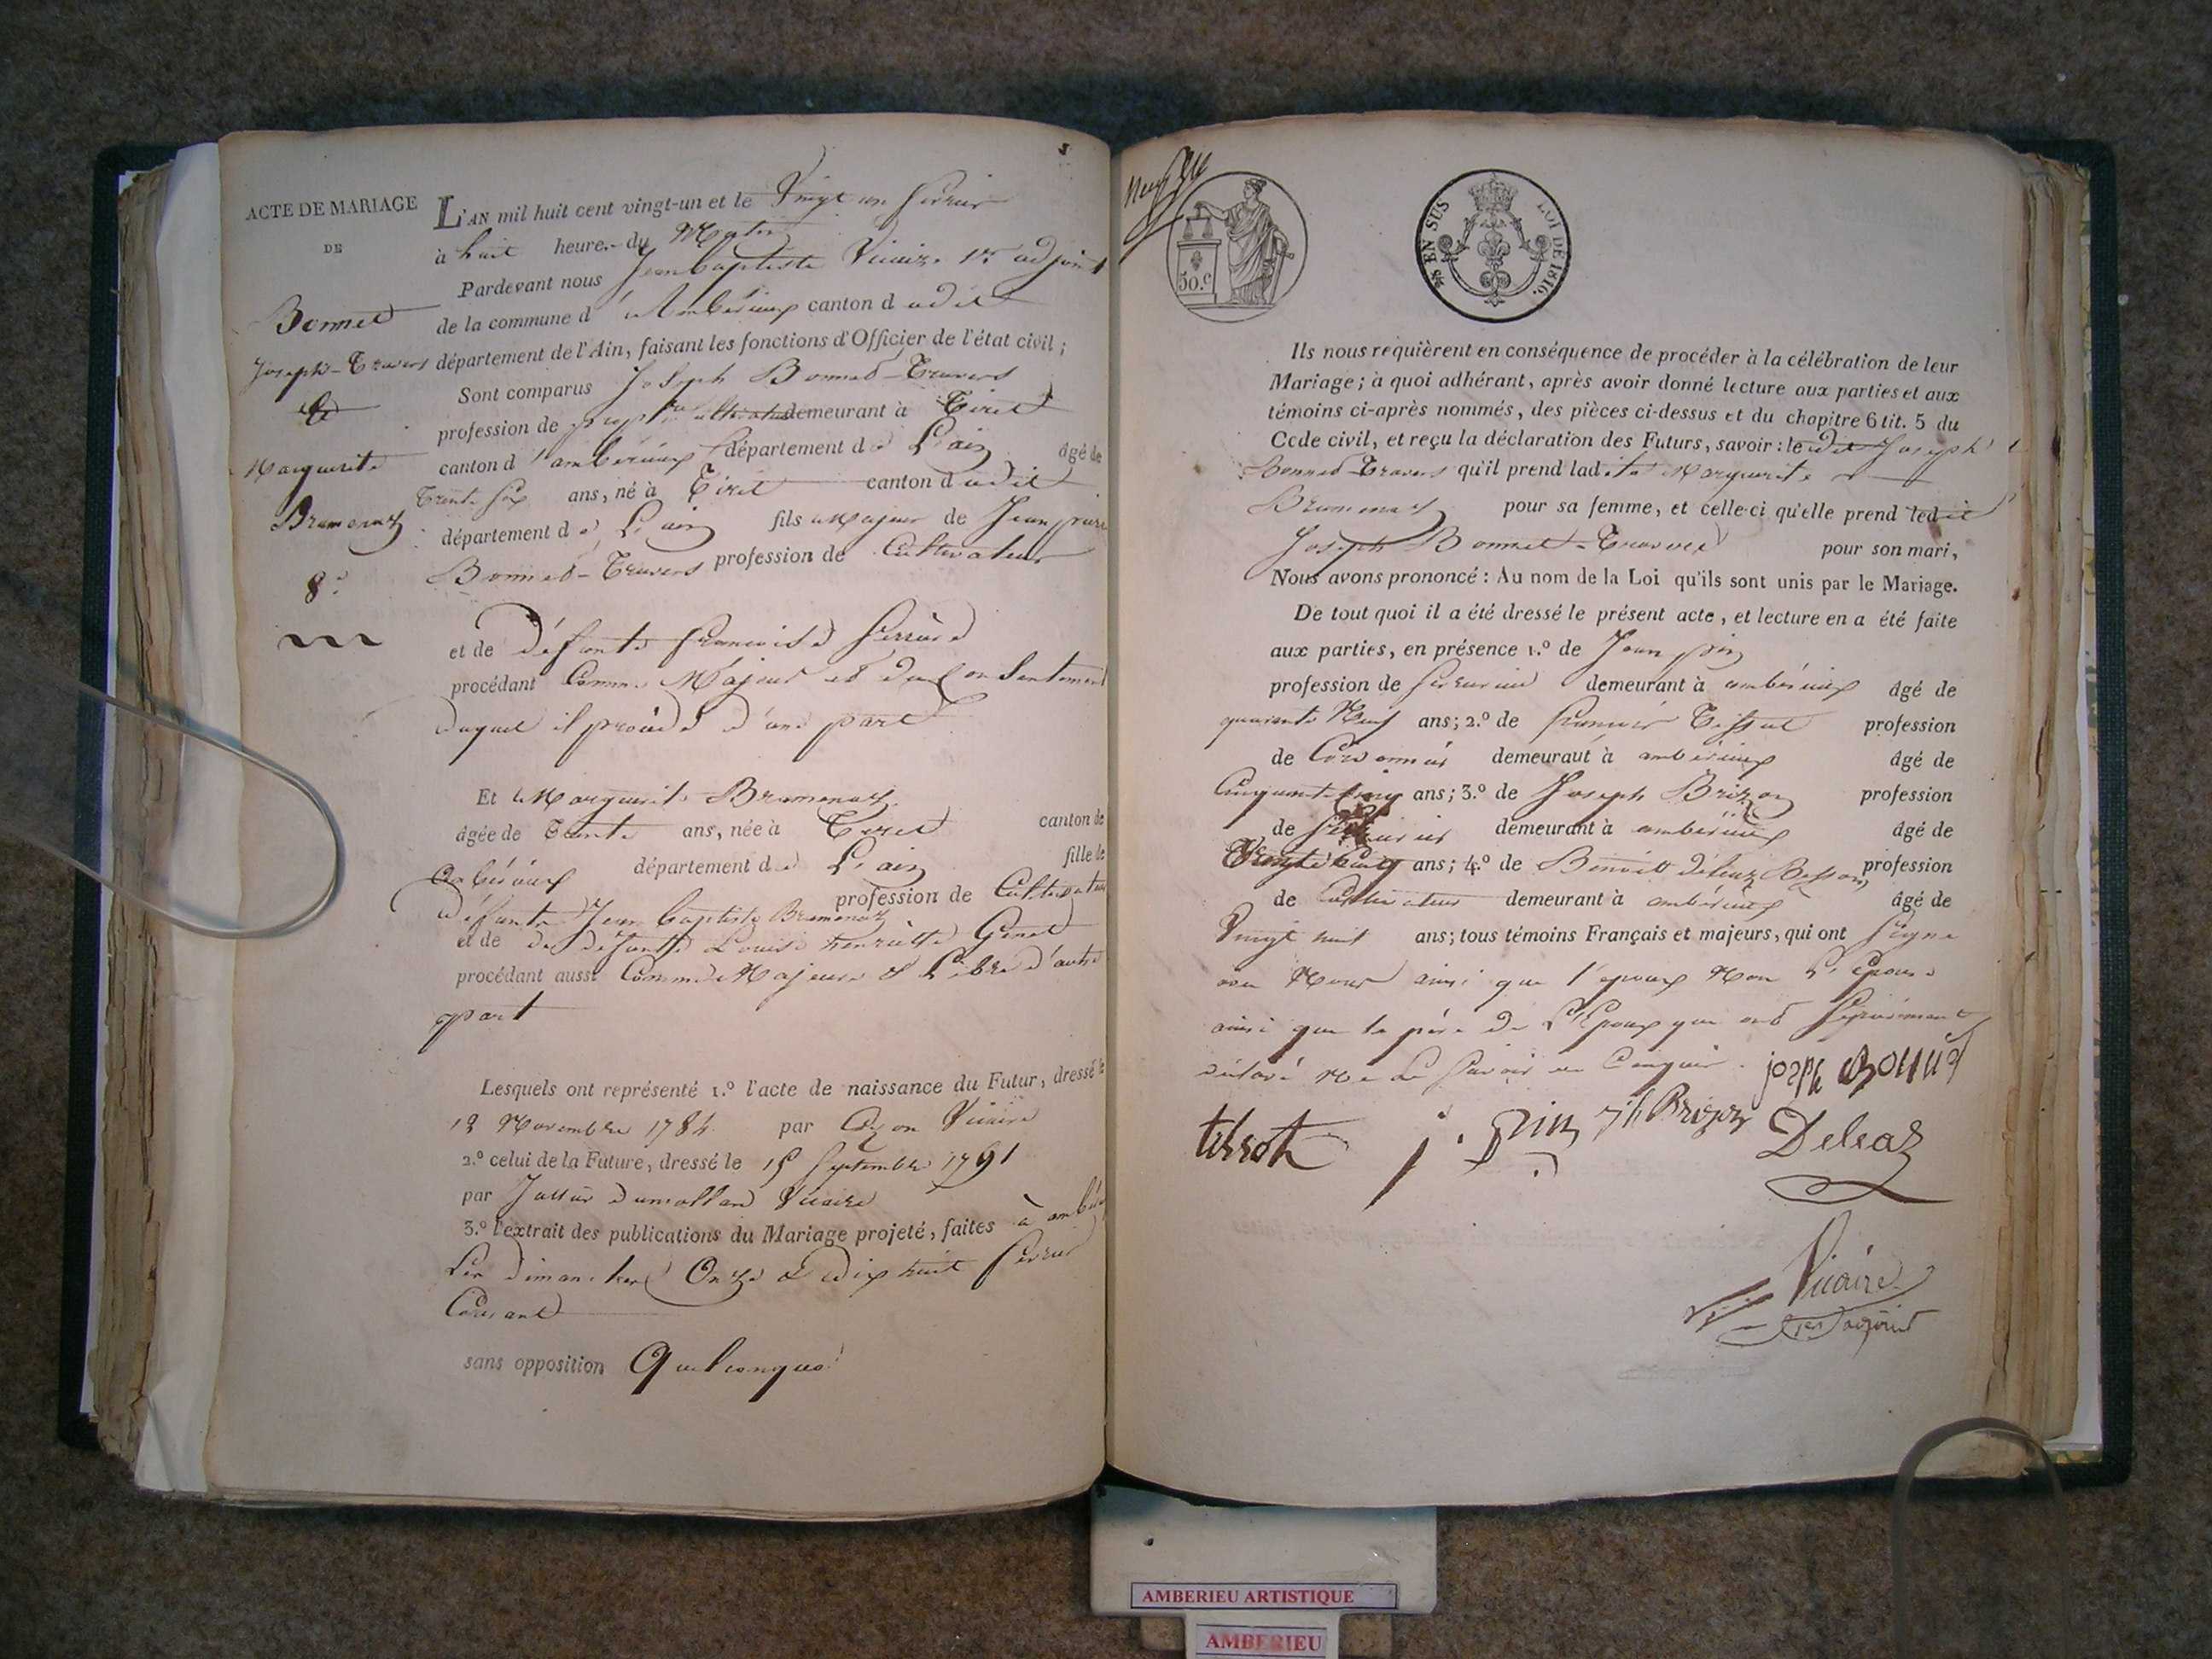 ACTE DE MARIAGE
DE
Bonnet
Joseph-Travers
&
Marguerite
Bramenaz
8.e
L'AN mil huit cent vingt-un et le Vingt un fevrier
à huit heures du Matin
Pardevant nous Jean baptiste Vicaire 1er adjoint
de la commune d'Ambérieux canton dudit
département de l'Ain, faisant les fonctions d'Officier de l'état civil ;
Sont comparus Joseph Bonnet-Travers
profession de demeurant à Tiret
canton d'ambérieux département de L'ain âgé de
Trente six ans, né à Tiret canton dudit
département de L'ain fils Majeur de Jean
Bonnet-Travers profession de Cultivateur
et de défunte francoise
procédant Comme Majeur et du Consentement
duquel il procède d'une part
Et Marguerite Bramenaz
âgée de Trente ans, née à Tiret canton de
ambérieux département de L'ain fille de
défunt Jean baptiste Bramenaz profession de Cultivateur
et de de défunte Louise henriette Genet
procédant aussi Comme Majeure & Libre d'autre
part
Lesquels ont représenté 1.º l'acte de naissance du Futur, dressé le
12 Novembre 1784 par Vicaire
2.º celui de la Future, dressé le 15 Septembre 1791
par dumollard Vicaire
3.º l'extrait des publications du Mariage projeté, faites à
Les dimanches Onze & dix huit fevrier
Courant
sans opposition Quelconque
50.c
EN SUS LOI DE 1816.
Ils nous requièrent en conséquence de procéder à la célébration de leur
Mariage ; à quoi adhérant, après avoir donné lecture aux parties et aux
témoins ci-après nommés, des pièces ci-dessus et du chapitre 6 tit. 5 du
Code civil, et reçu la déclaration des Futurs, savoir : ledit Joseph
Bonnet-Travers qu'il prend ladite Marguerite
Bramenaz pour sa femme, et celle-ci qu'elle prend ledit
Joseph Bonnet-Travers pour son mari,
Nous avons prononcé : Au nom de la Loi qu'ils sont unis par le Mariage.
De tout quoi il a été dressé le présent acte, et lecture en a été faite
aux parties, en présence 1.º de Jean pin
profession de Serrurier demeurant à ambérieux âgé de
quarante Neuf ans ; 2.º de francois Tissot profession
de Cordonnier demeuraut à ambérieux âgé de
Cinquante cinq ans ; 3.º de Joseph Brizon profession
de demeurant à ambérieux âgé de
ans ; 4.º de Benoitt déléaz profession
de Cultivateur demeurant à ambérieux âgé de
Vingt huit ans ; tous témoins Français et majeurs, qui ont Signe
avec Nous ainsi que l'epoux Non L'épouse
ainsi que le père de L'Epoux qui ont Séparément
déclaré Ne Le Savoir
joseph Bonnet
tissot j. pin Brizon Deleaz
Vicaire
1er adjoint
AMBERIEU ARTISTIQUE
AMBERIEU